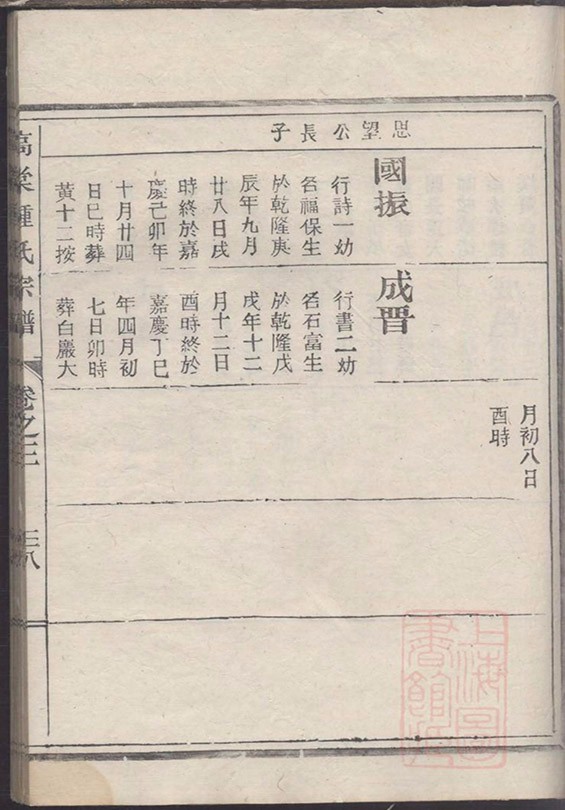 思望公長子
國振
行詩一幼
名福保生
於乾隆庚
辰年九月
廿八日戌
時終於嘉
慶己卯年
十月廿四
日巳時葬
黃十二按
成晋
行書二幼
名石富生
於乾隆戊
戌年十二
月十二日
酉時終於
嘉慶丁巳
年四月初
七日卯時
葬白巖大
月初八日
酉時
高梁鍾氏宗譜
卷之三
三八
上海圖書館藏